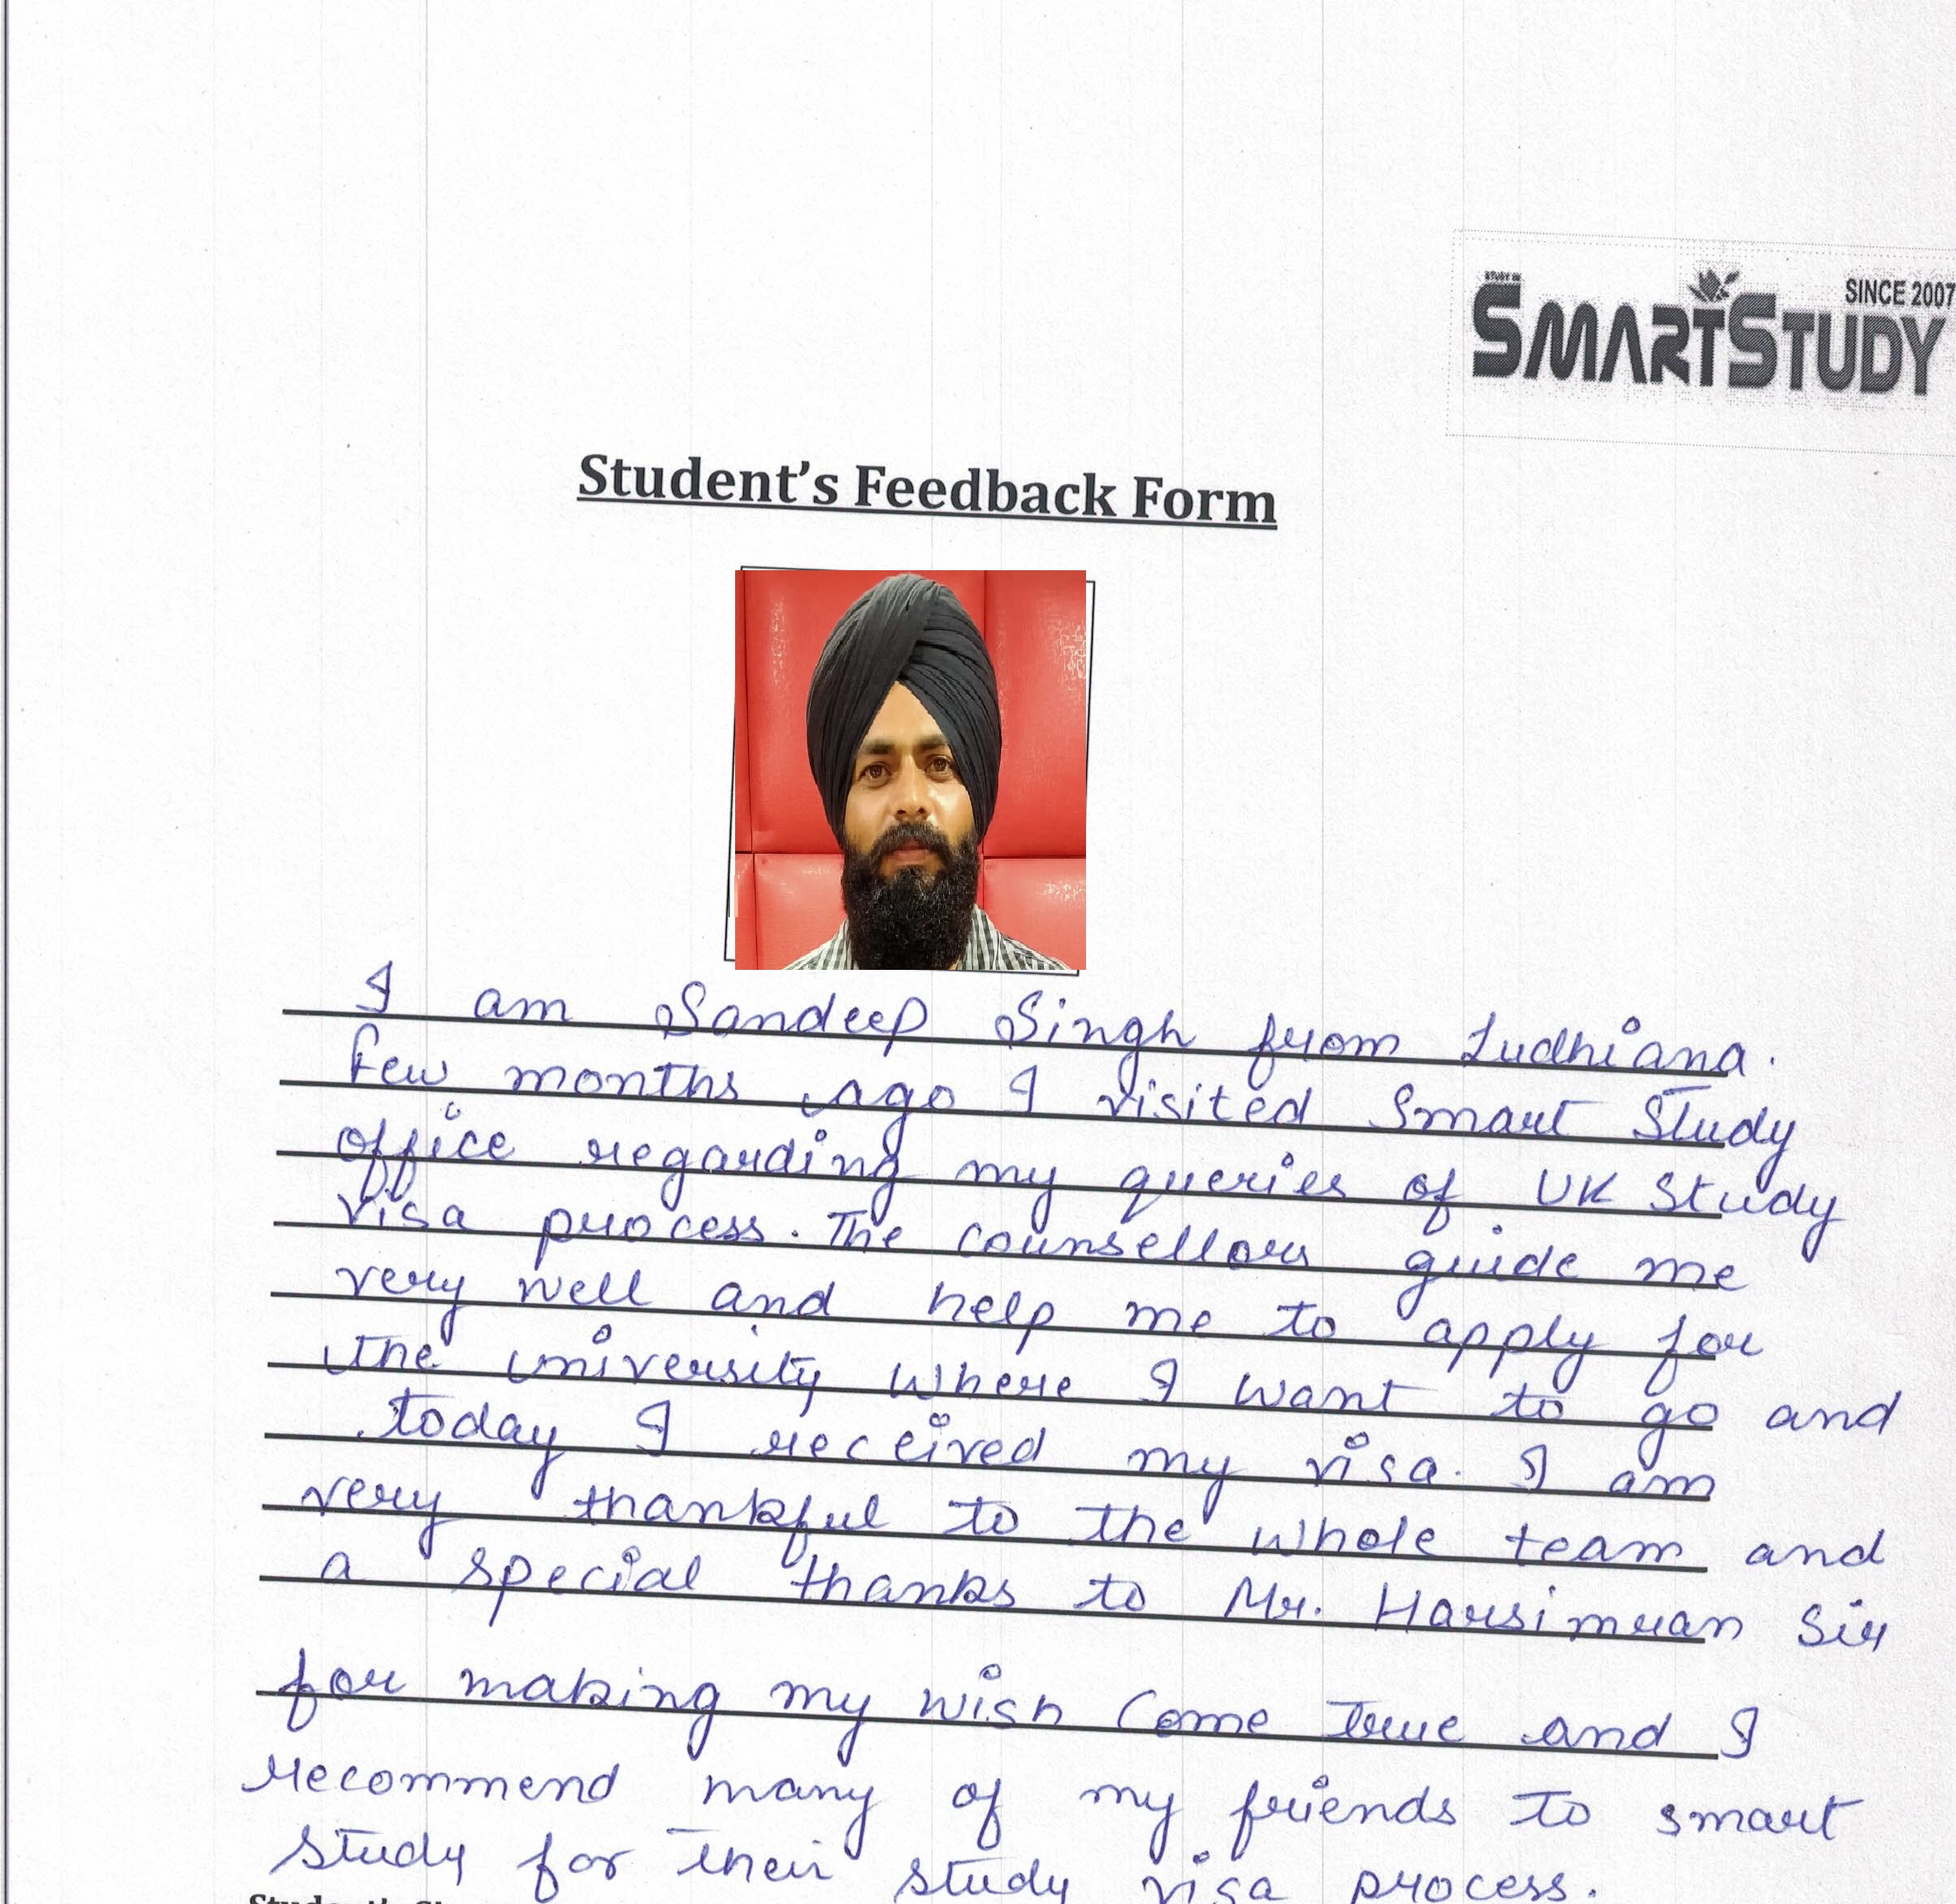 STUDY IN
SINCE 2007
SMARTSTUDY
Student's Feedback Form
I am Sandeep Singh from Ludhiana.
few months ago I visited Smart Study
office regarding my queries of UK Study
visa process. The counsellors guide me
very well and help me to apply for
the university where I want to go and
today I received my visa. I am
very thankful to the whole team and
a special thanks to Mr. Harsimran Sir
for making my wish come true and I
recommend many of my friends to smart
study for their study visa process.